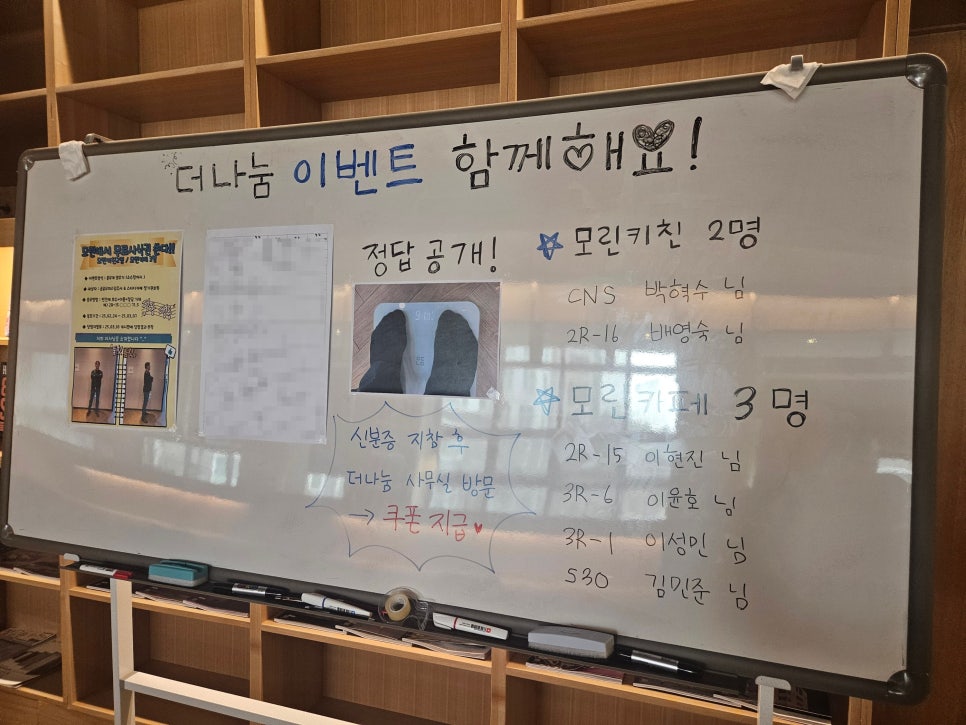 더나눔 이벤트 함께해요!
모린에서 무료시식권 쏜다!!
정답공개!
신분증 지참 후
더나눔 사무실 방문
→ 쿠폰 지급
모린키친 2명
CNS 박혁수 님
2R-16 배영숙 님
모린카페 3명
2R-15 이현진 님
3R-6 이윤호 님
3R-1 이성민 님
530 김민준 님